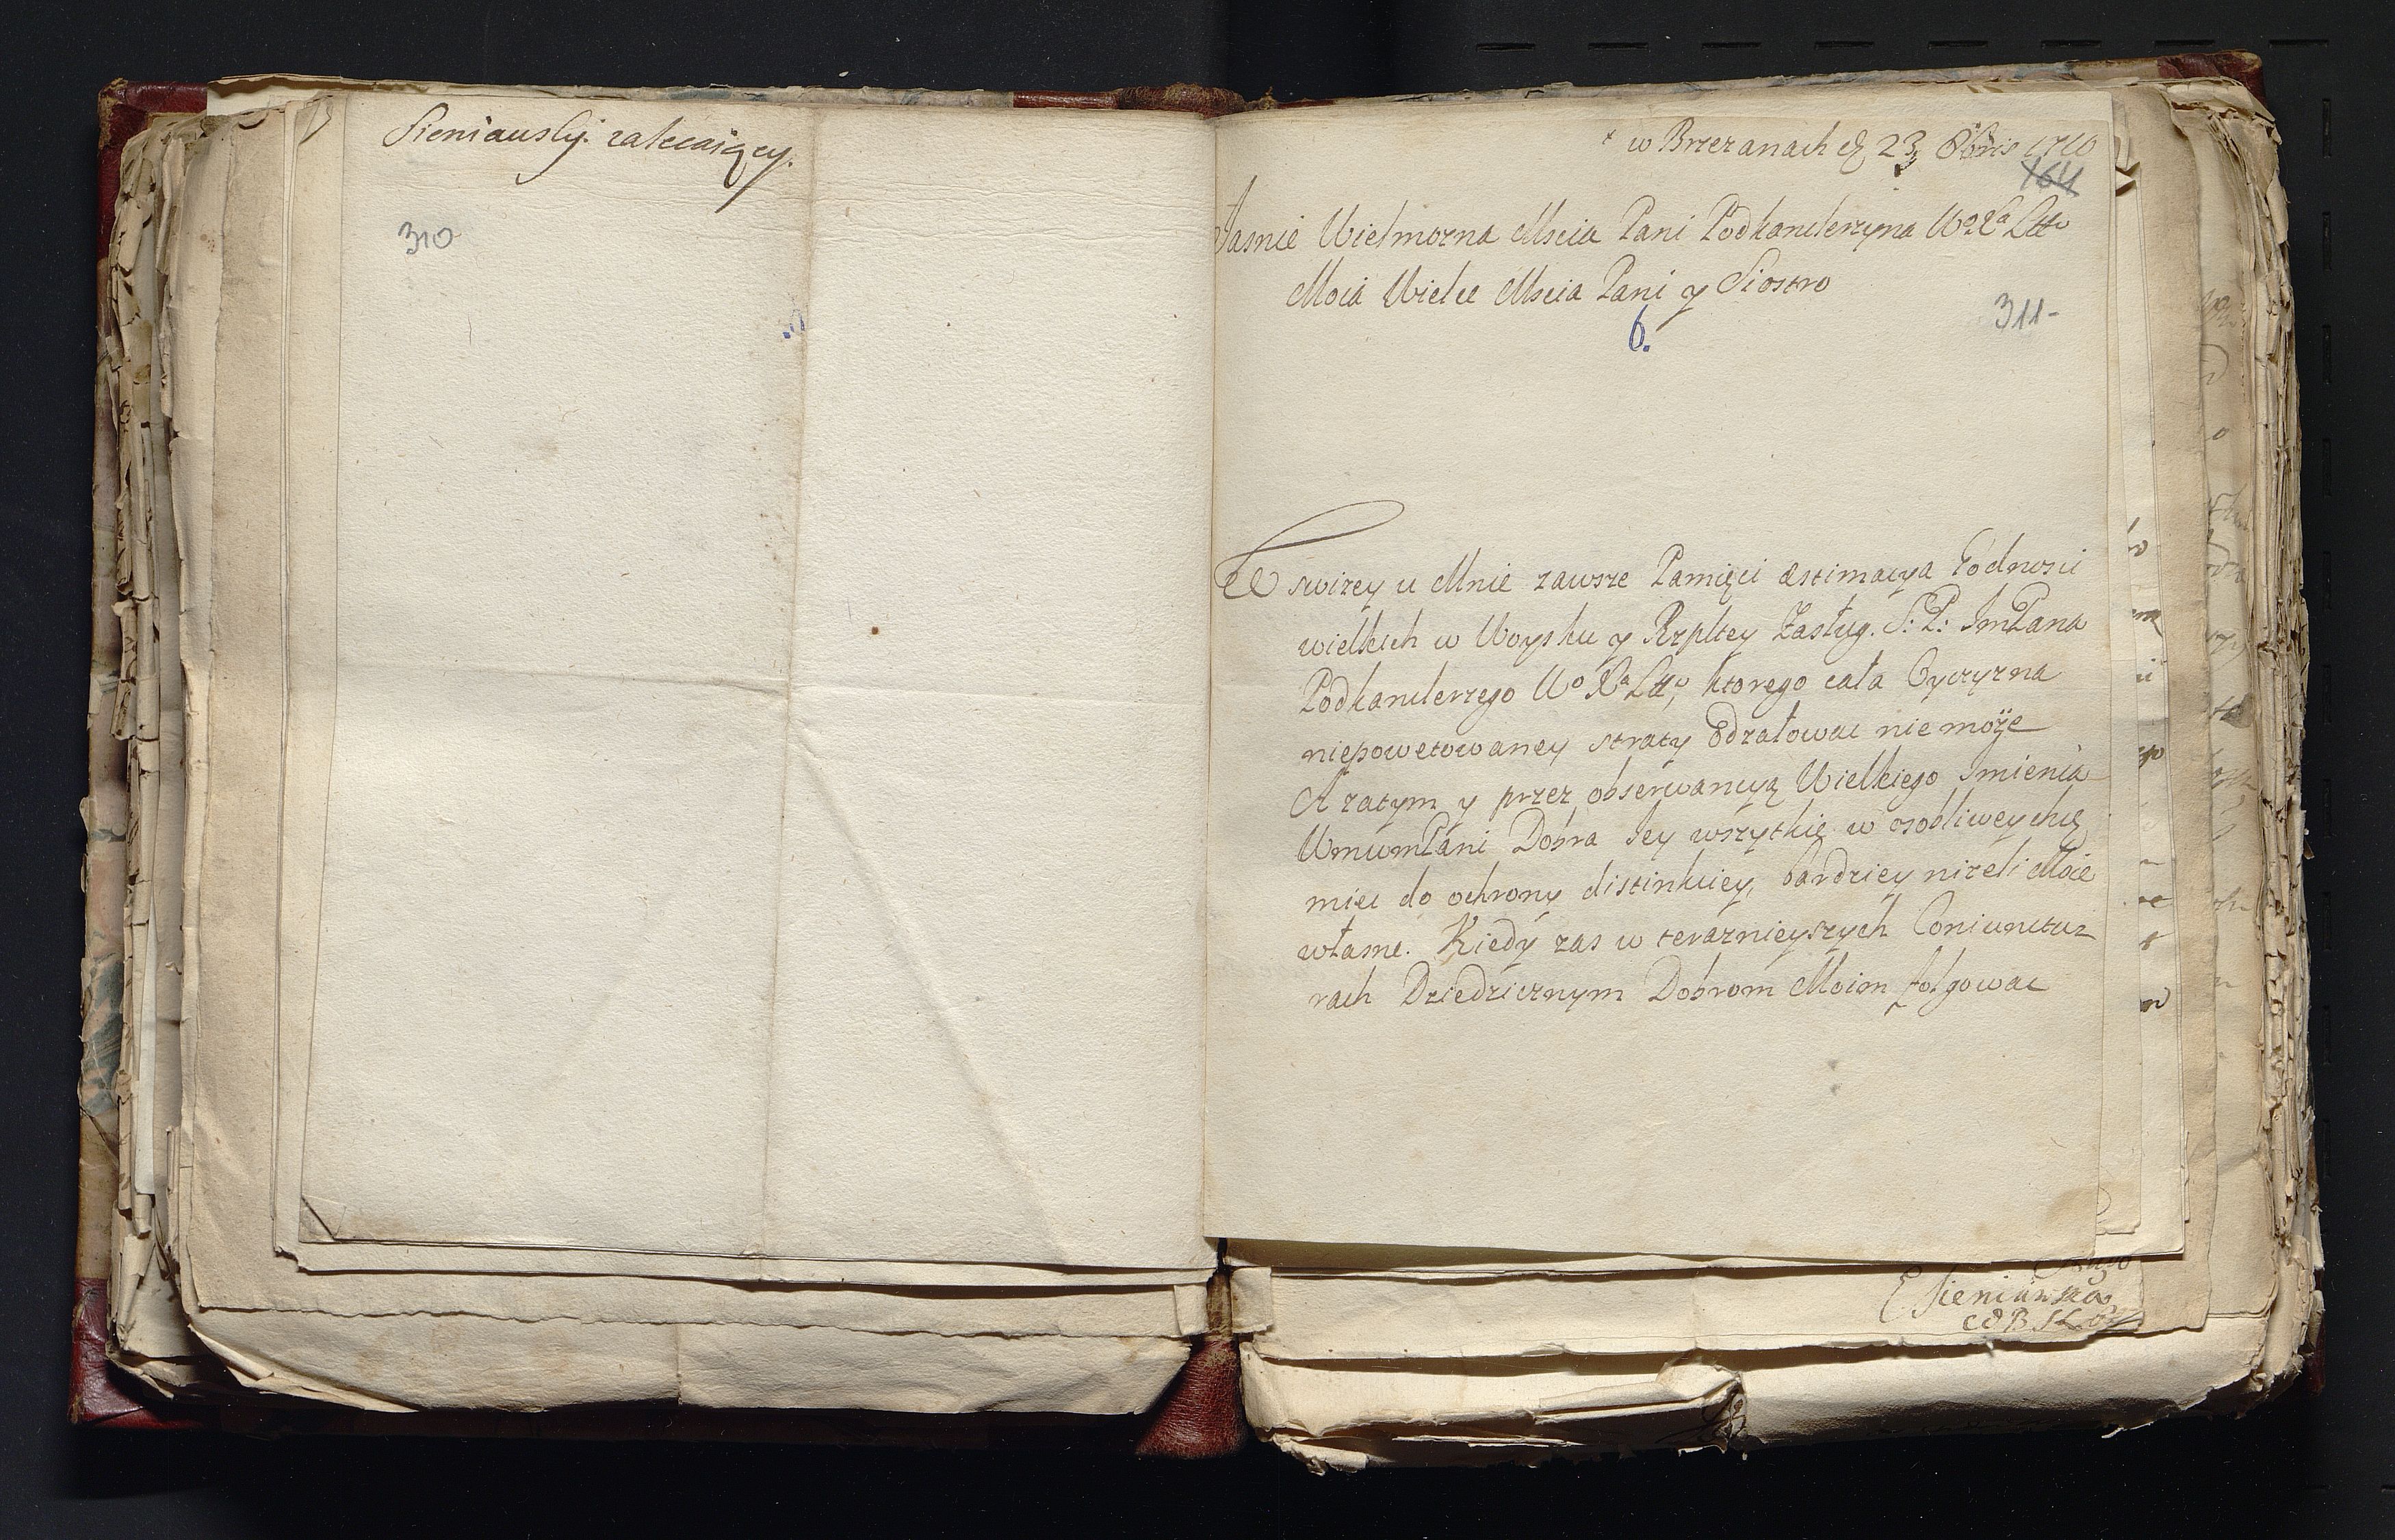 Sieniausky. zalecaiący.
310
w Brzezanach d. 23 8bris 1710
164
Jasnie Wielmozna Mscia Pani Podkanclerzyna Wo Xa Litto
Moia Wielce Mscia Pani y Siostro
6.
311-
W swizey u Mnie zawsze Pamięci æstimacya Godnosci
wielkich w Woysku y Rzpltey Zasług. S: P: ImPana
Podkanclerzego Wo Xa Litto, ktorego cała Oyczyzna
niepowetowaney straty Odzałowac nie może
A zatym y przez obserwancyą Wielkiego Imienia
WmwmPani Dobra Jey wszytkie w osobliwey chcę
miec do ochrony distinkciey, bardziey nizeli Moie
własne. Kiedy zas w teraznieyszych Coniunctu=
rach Dziedzicznym Dobrom Moim folgowac
ESieniawska